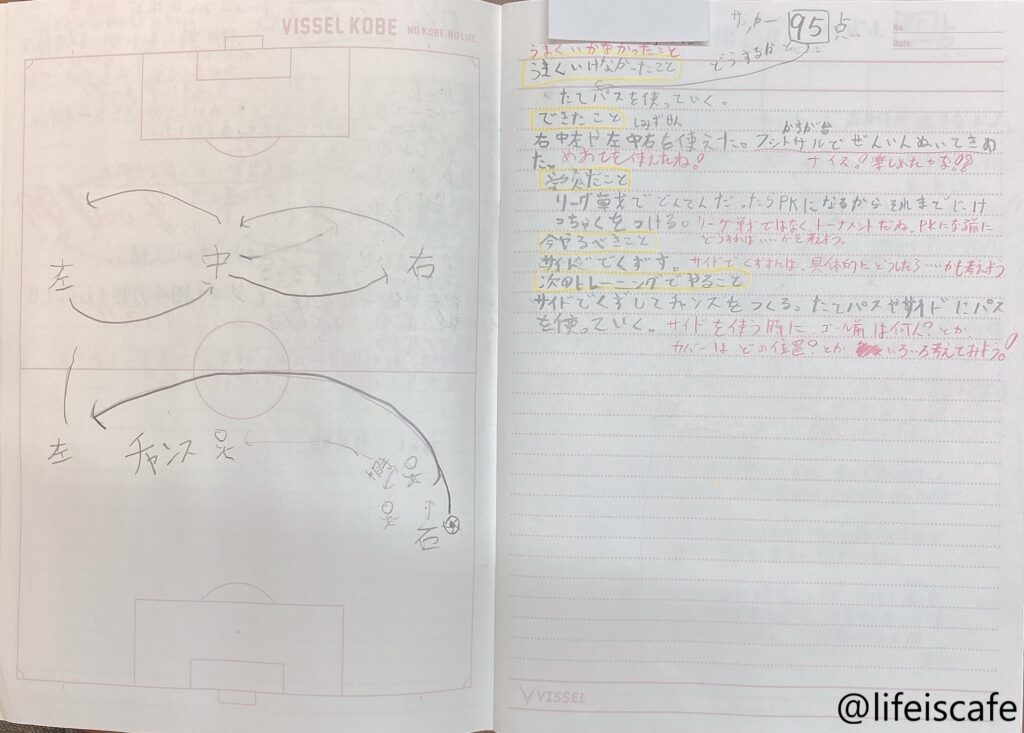 VISSEL KOBE NO KOBE, NO LIFE.
左
中
右
左
チャンス
右
サッカー 95 点
No.
Date.
うまくいかなかったこと
うまくいけなかったこと
どうするかと
たてパスを使っていく。
できたこと
右中左や左中右を使えた。フットサルでぜんいんぬいてきめ
た。めおでも使えたね! ナイス!楽しめたかな!?
学んだこと
リーグ戦でどんてんだったらPKになるからそれまでにけ
っちゃくをつける。リーグ戦ではなくトーナメントだね。PKになる前に
どうすればいいかを考えよう。
今やるべきこと
サイドでくずす。サイドでくずすには、具体的にどうしたら…かも考えよう
次のトレーニングでやること
サイドでくずしてチャンスをつくる。たてパスやサイドにパス
を使っていく。サイドを使う時に ゴール前は何人?とか
カバーはどの位置?とか いろいろ考えてみよう!
VISSEL
@lifeiscafe